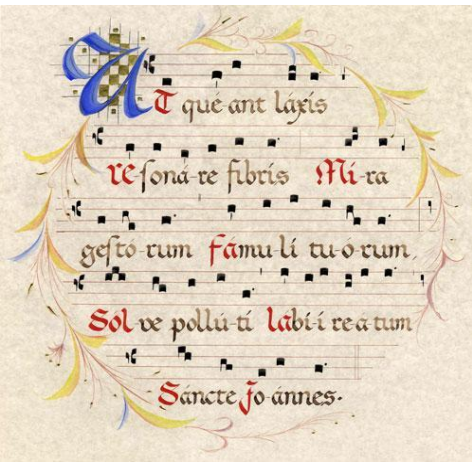 UT què ant láxis
re-soná-re fibris Mi-ra
gestó-rum fámu-li tu-ó-rum,
Sol-ve pollú-ti lábi-i re a tum
Sáncte Jo-ánnes.